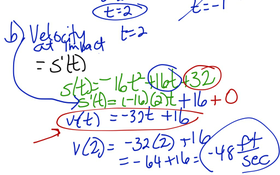 t=2
t=-1
b) Velocity at impact t=2
= s'(t)
s(t)=-16t²+16t+32
s'(t)=(-16)(2)t+16+0
v(t) = -32t +16
v(2) = -32(2) +16
= -64+16= -48 ft/sec